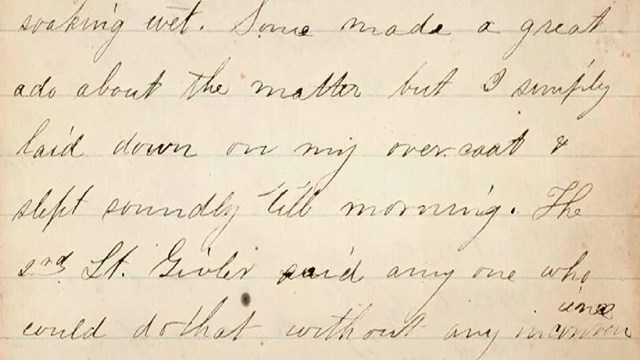 soaking wet. Some made a great
ado about the matter but I simply
laid down on my overcoat &
slept soundly till morning. The
2nd Lt. said any one who
could do that without any